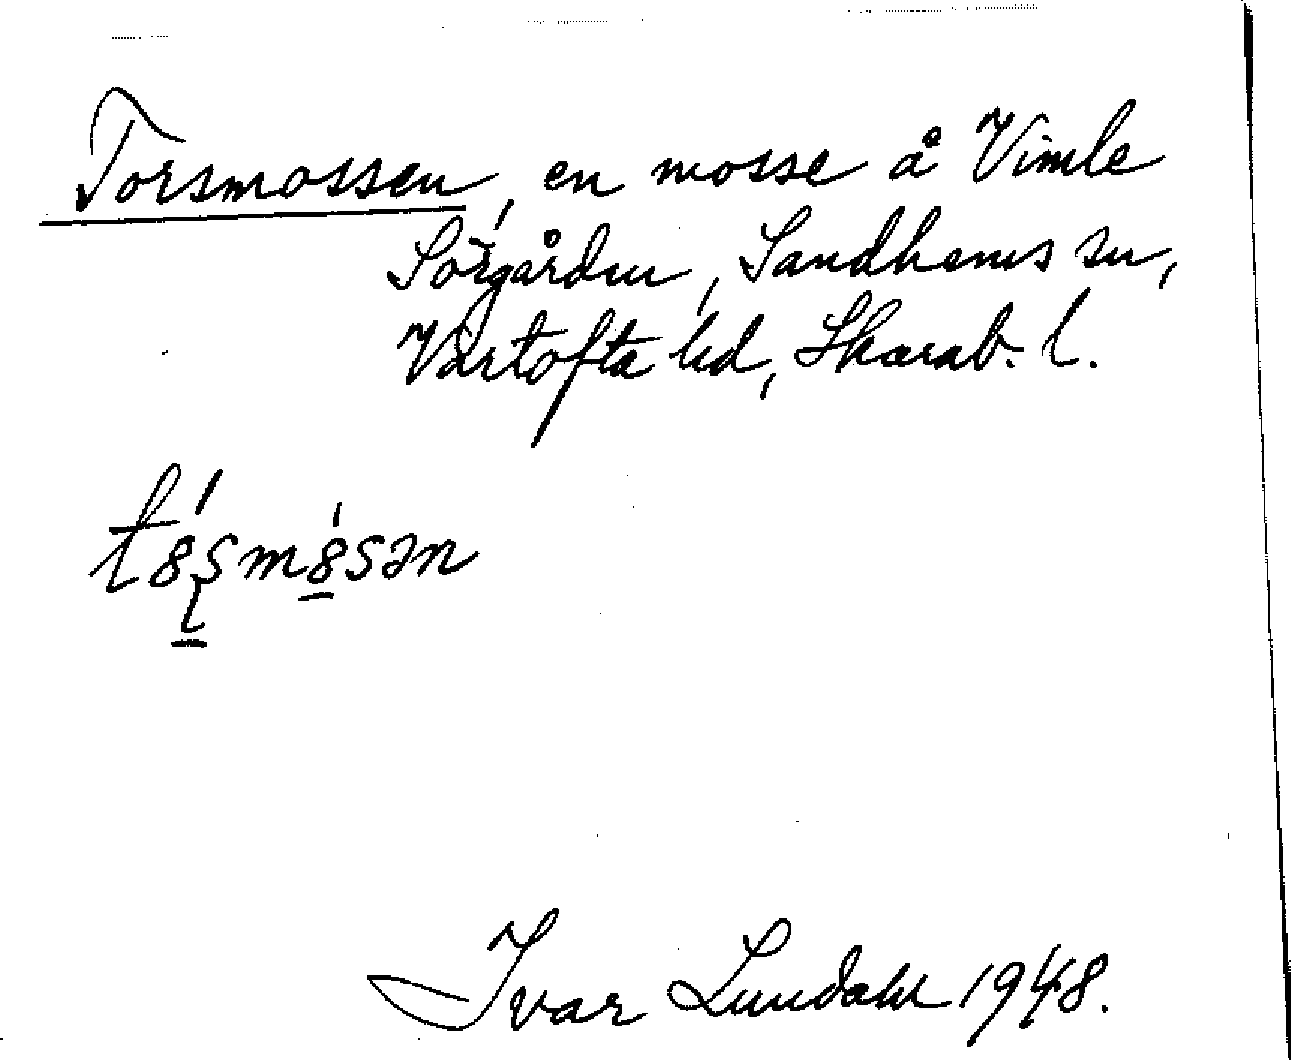 Torsmossen, en mosse å Vimle
Sörgården, Sandhems sn,
Vartofta hd, Skarab. l.
tȣ́ʂmȣ̀sən
Ivar Lundahl 1948.